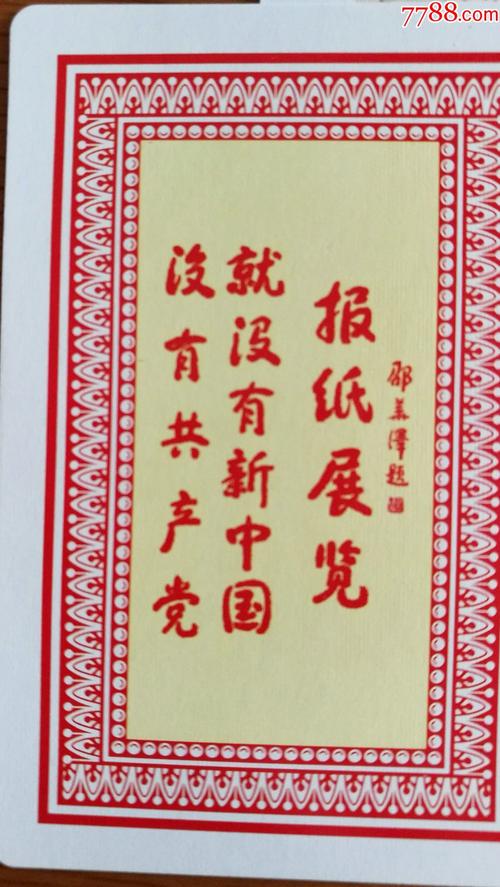 7788.com
没有共产党
就没有新中国
报纸展览
邵華澤题